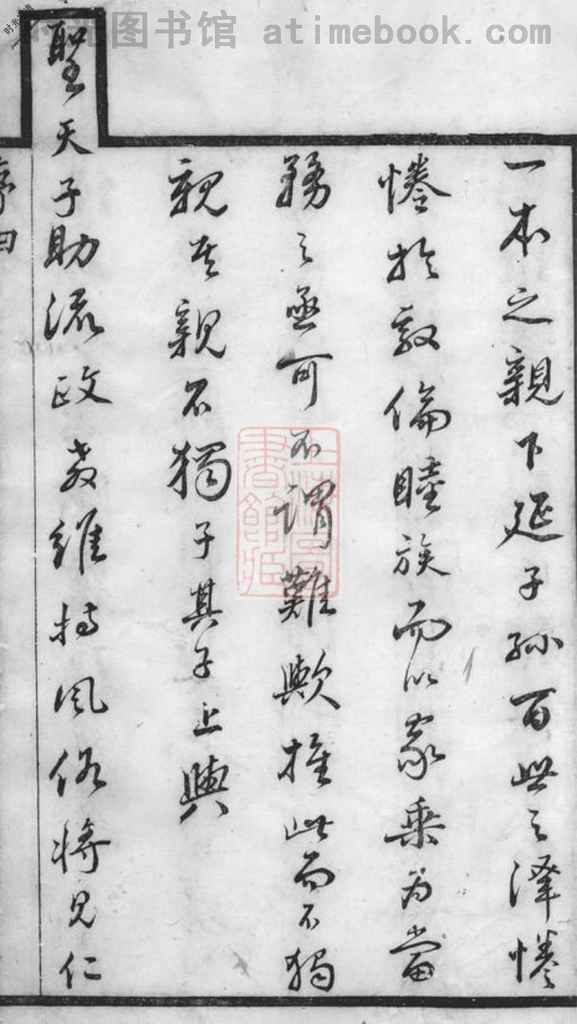 一本之親下延子孫百世之澤惓
惓於敦倫睦族而以家乗為當
務之亟可不謂難歟推此而不獨
親其親不獨子其子上與
聖天子助流政教維持風俗將見仁
序四
时光图书馆 atimebook.com
上海圖書館藏